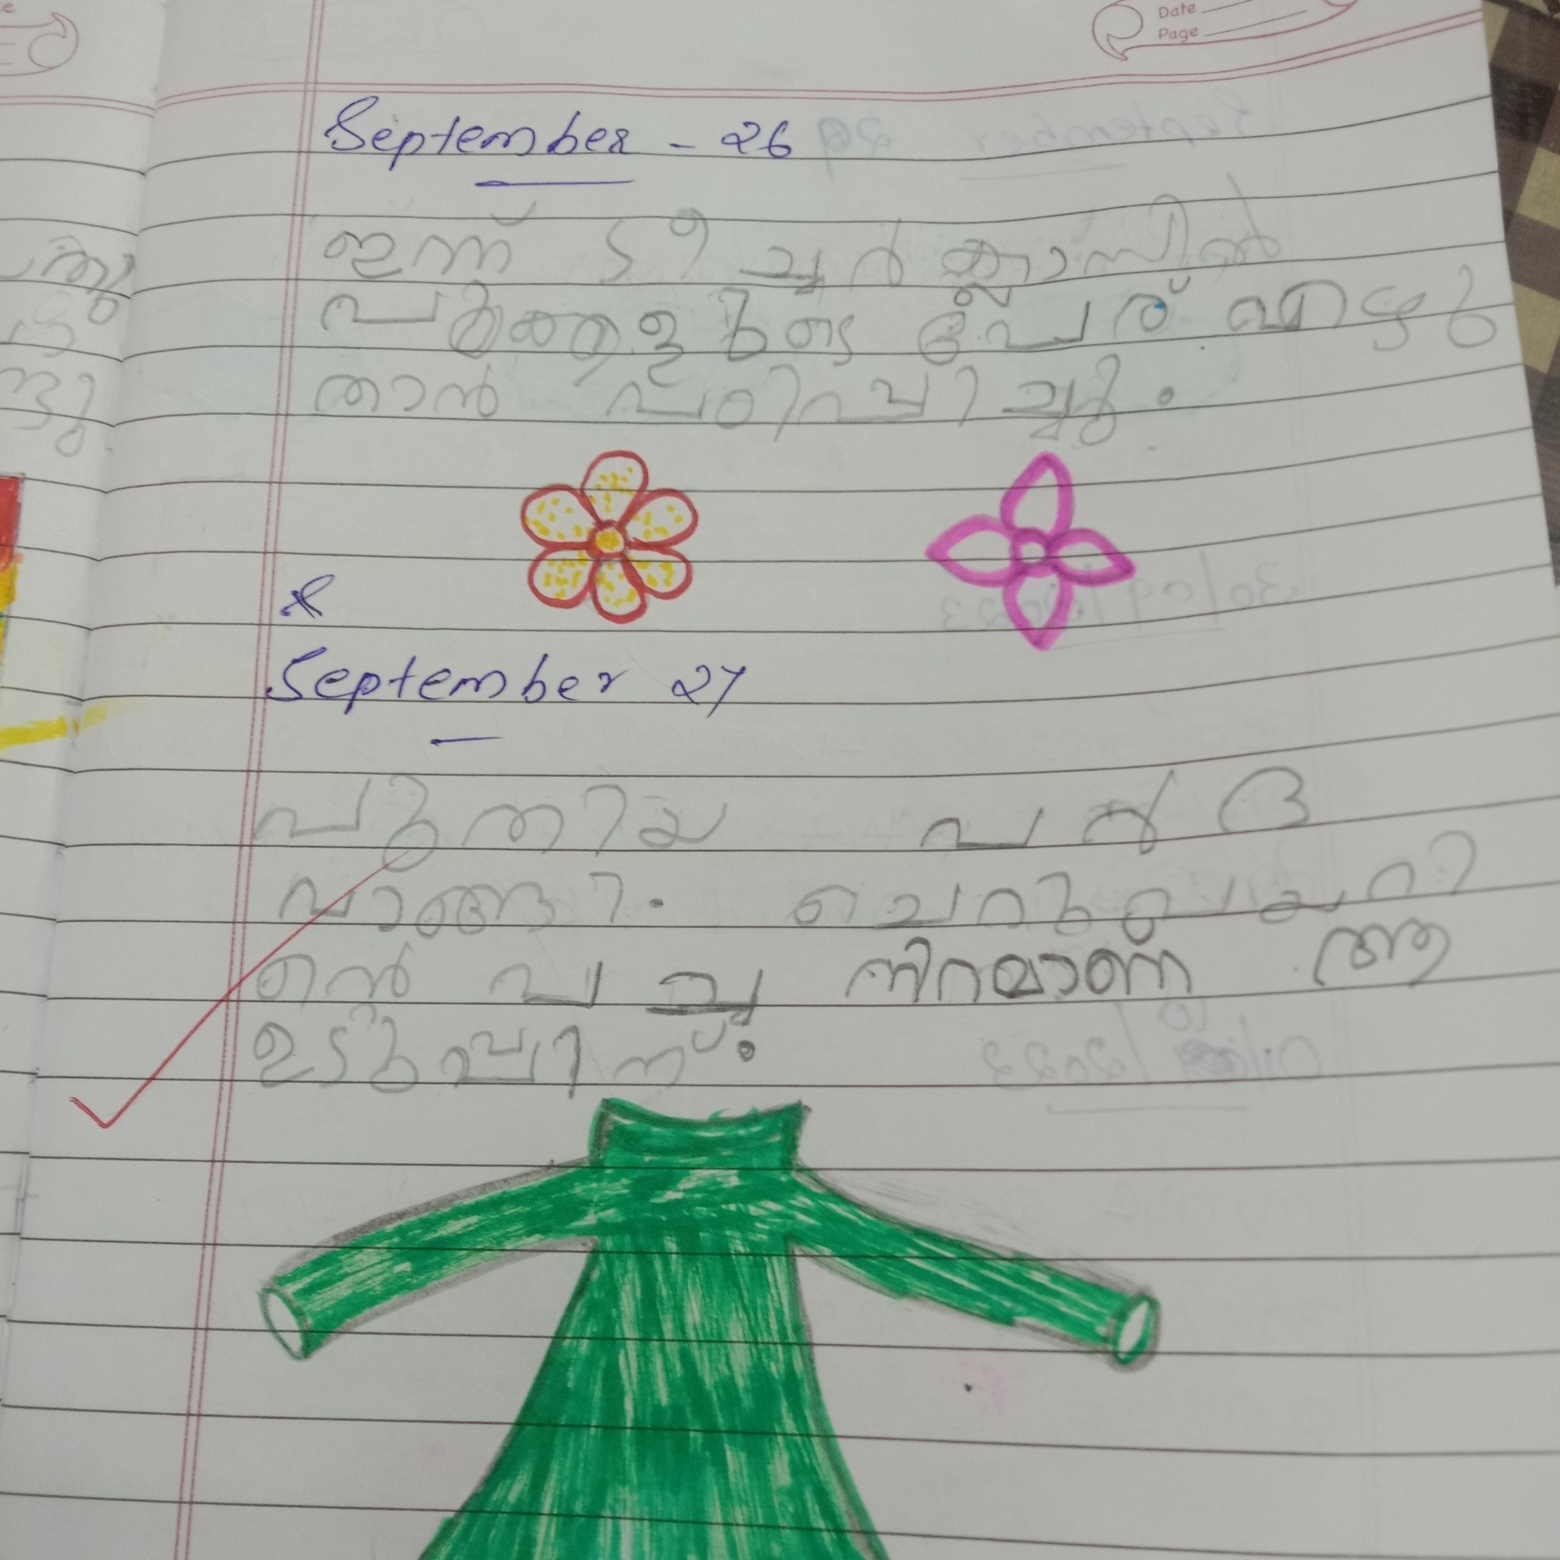 Date
Page
September - 26
ഇന്ന് ടീച്ചർ ക്ലാസിൽ
പൂക്കളുടെ പേര് എഴു
താൻ പഠിപ്പിച്ചു.
September 27
പുതിയ പർദ
വാങ്ങി. ചെറുപയറി
ൻെ പച്ച നിറമാണ് ആ
ഉടുപ്പിന്.